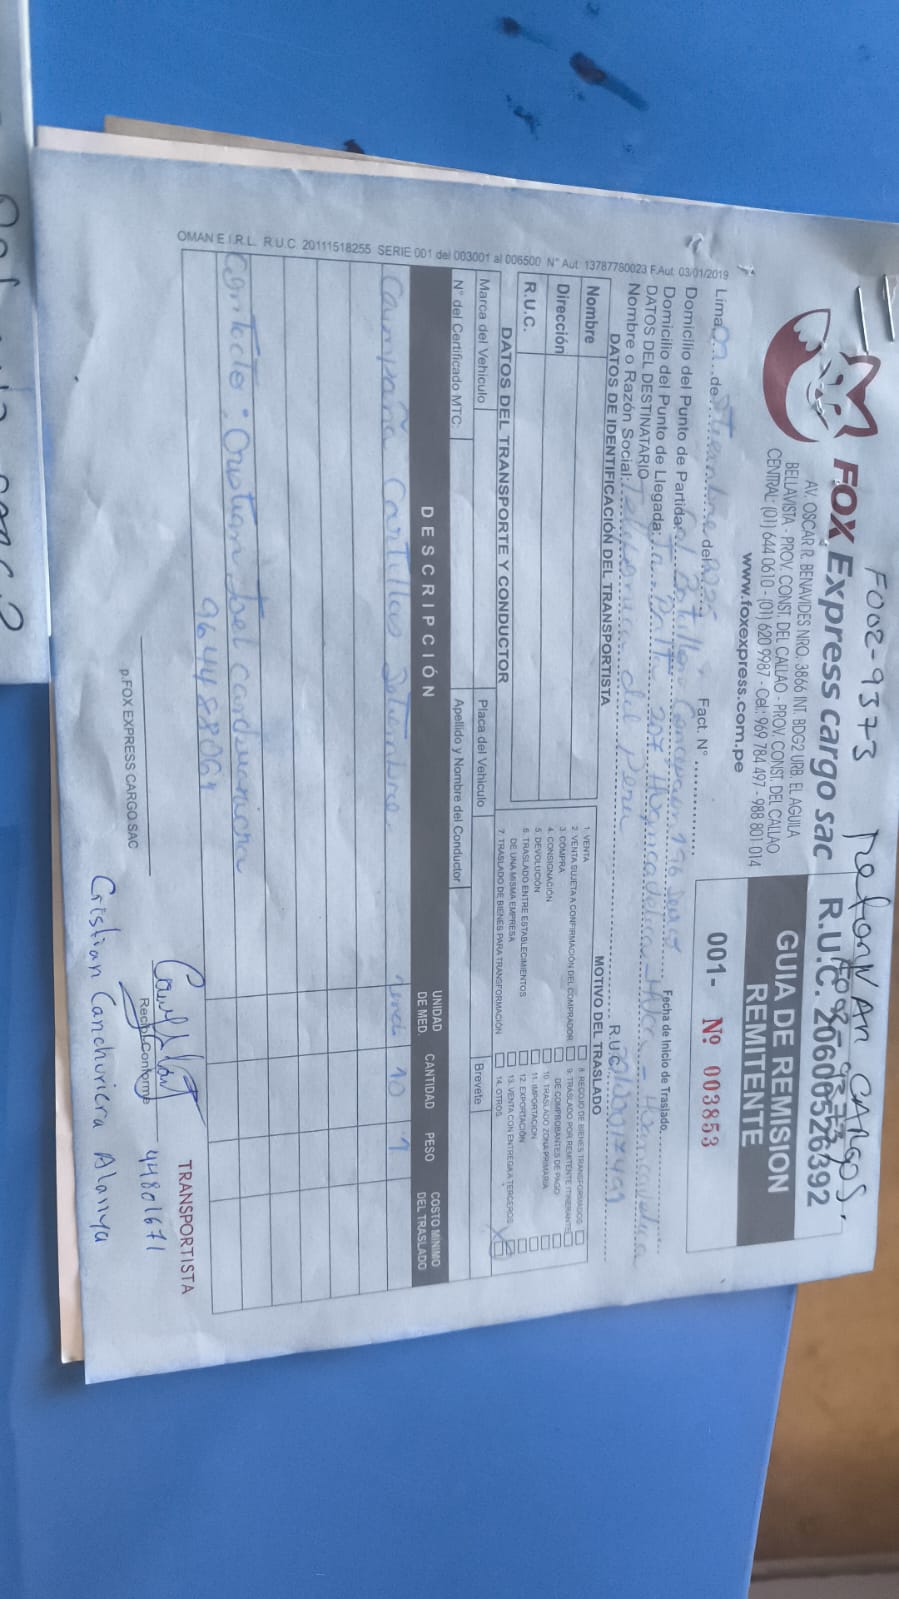 F002-9373 retornAn cargos.
F002-9373
FOX Express cargo sac
AV. OSCAR R. BENAVIDES NRO, 3866 INT. BDG2 URB. EL AGUILA
BELLAVISTA - PROV. CONST. DEL CALLAO - PROV. CONST. DEL CALLAO
CENTRAL: (01) 644 0610 - (01) 620 9987 - Cel.: 969 784 497 - 988 801 014
www.foxexpress.com.pe
R.U.C. 20600526392
GUIA DE REMISION
REMITENTE
001- Nº 003853
Lima, de Setiembre del 2025 Fact. N°
Domicilio del Punto de Partida: Cal. Botilleria Concepcion 196 Fecha de Inicio de Traslado
Domicilio del Punto de Llegada: 207 Huancavelica - Huancavelica
DATOS DEL DESTINATARIO
Nombre o Razón Social: Telefonica del Peru R.U.C.
DATOS DE IDENTIFICACIÓN DEL TRANSPORTISTA
Nombre
Dirección
R.U.C.
MOTIVO DEL TRASLADO
1. VENTA
2. VENTA SUJETA A CONFIRMACIÓN DEL COMPRADOR
3. COMPRA
4. CONSIGNACIÓN
5. DEVOLUCIÓN
6. TRASLADO ENTRE ESTABLECIMIENTOS
DE UNA MISMA EMPRESA
7. TRASLADO DE BIENES PARA TRANSFORMACIÓN
8. RECOJO DE BIENES TRANSFORMADOS
9. TRASLADO POR REMITENTE ITINERANTE
DE COMPROBANTES DE PAGO
10. TRASLADO ZONA PRIMARIA
11. IMPORTACIÓN
12. EXPORTACIÓN
13. VENTA CON ENTREGA A TERCEROS
14. OTROS X
DATOS DEL TRANSPORTE Y CONDUCTOR
Marca del Vehiculo Placa del Vehiculo
N° del Certificado MTC: Apellido y Nombre del Conductor Brevete
DESCRIPCIÓN UNIDAD DE MED CANTIDAD PESO COSTO MINIMO DEL TRASLADO
Campaña Cartillas Setiembre 10 1
Contacto: Cristian Joel Canchuricra
964488064
OMAN E.I.R.L. R.U.C. 20111518255 SERIE 001 del 003001 al 006500 N° Aut. 13787780023 F.Aut. 03/01/2019
p.FOX EXPRESS CARGO SAC
Recibi Conforme
44801671
TRANSPORTISTA
Cristian Canchuricra Alanya